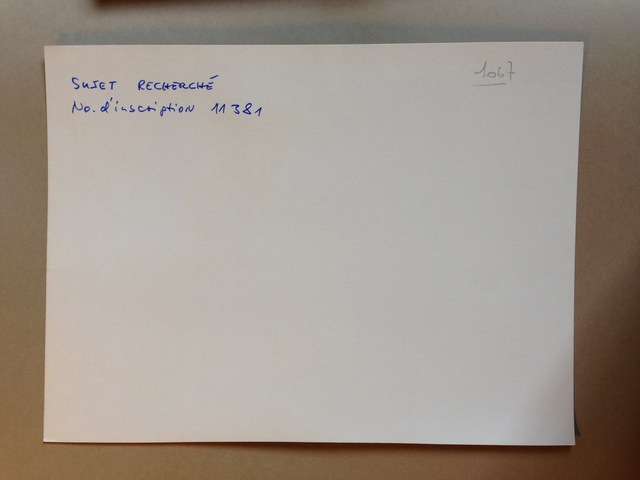 SUJET RECHERCHÉ
No. d'inscription 11381
1067